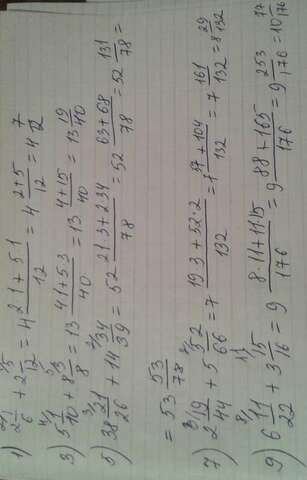 1) 2 1/6 + 2 5/12 = 4 (2·1+5·1)/12 = 4 (2+5)/12 = 4 7/12
3) 5 1/10 + 8 3/8 = 13 (4·1+5·3)/40 = 13 (4+15)/40 = 13 19/40
5) 38 21/26 + 14 34/39 = 52 (21·3+2·34)/78 = 52 (63+68)/78 = 52 131/78 =
= 53 53/78
7) 2 19/44 + 5 52/66 = 7 (19·3+52·2)/132 = 7 (57+104)/132 = 7 161/132 = 8 29/132
9) 6 11/22 + 3 15/16 = 9 (8·11+11·15)/176 = 9 (88+165)/176 = 9 253/176 = 10 77/176